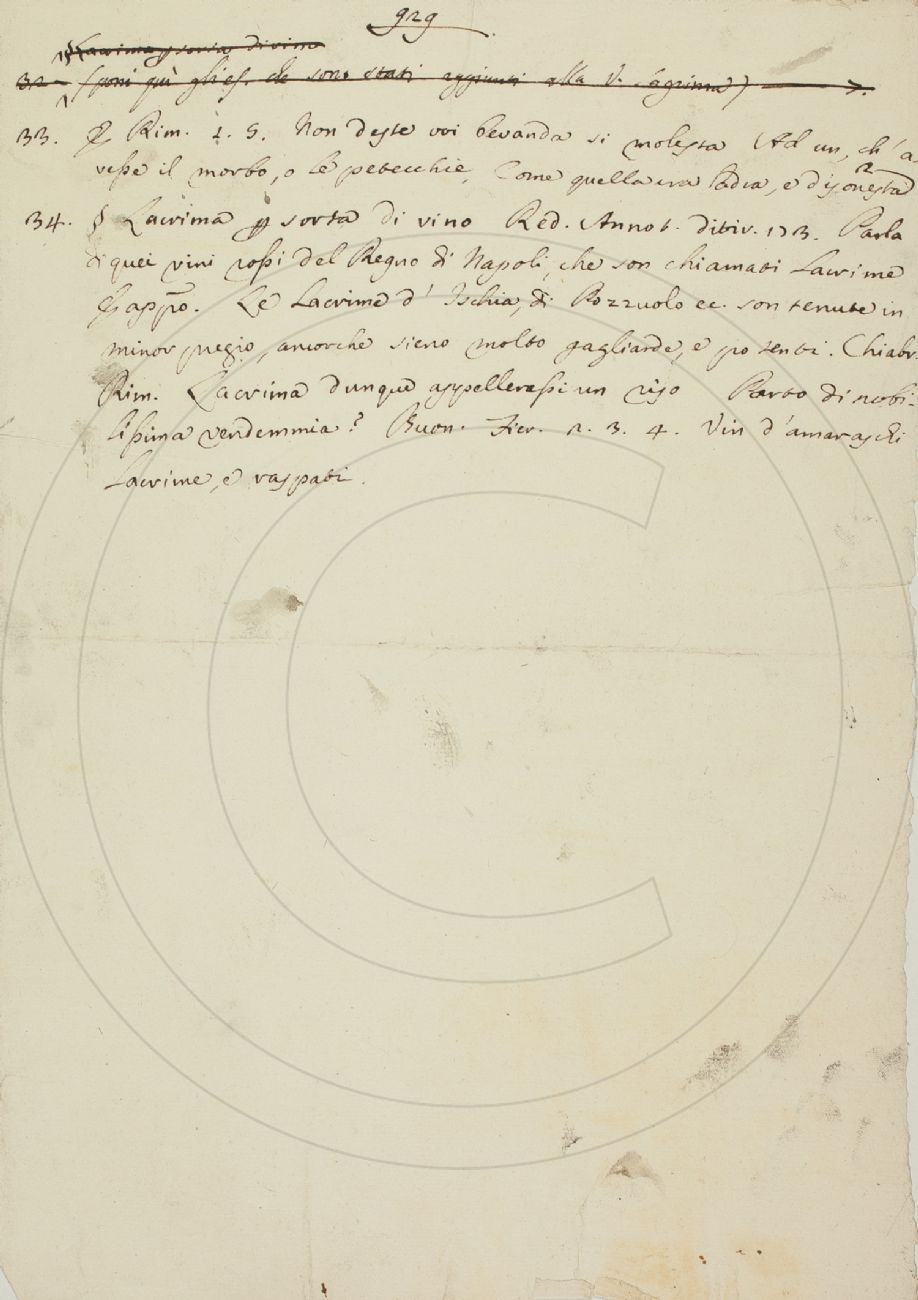 929
§ Lacrima p sorta di vino
32 (poni quì gli es. che sono stati aggiunti alla V. Lagrima)
33. E Rim. 1. 5. Non deste voi bevanda sì molesta Ad un, ch' a
vesse il morbo, o le petecchie, Come quella era ladra, e disonesta
34. § Lacrima p sorta di vino Red. Annot. ditir. 173. Parla
di quei vini rossi del Regno di Napoli, che son chiamati Lacrime
E appo. Le Lacrime d' Ischia, di Pozzuolo ec. son tenute in
minor pregio, ancorchè sieno molto gagliarde, e potenti. Chiabr.
Rim. Lacrima dunque appellerassi un riso Parto di nobi-
lissima vendemmia? Buon. Fier. 2. 3. 4. Vin d'amaraschi
Lacrime, e raspati.